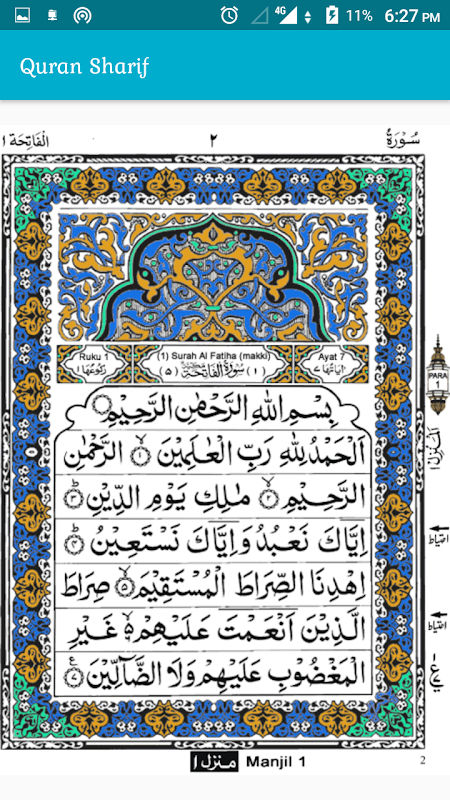 4G 11% 6:27 PM
Quran Sharif
سُوْرَةُ ٢ الْفَاتِحَة ١
Ruku 1 (1) Surah Al Fatiha (makki) Ayat 7
اٰیَاتُهَا ٧ (١) سُوْرَةُ الْفَاتِحَةِ (٥) رُكُوْعُهَا ١
بِسْمِ اللّٰهِ الرَّحْمٰنِ الرَّحِیْمِ
اَلْحَمْدُ لِلّٰهِ رَبِّ الْعٰلَمِیْنَ ۙ﴿١﴾ الرَّحْمٰنِ
الرَّحِیْمِ ۙ﴿٢﴾ مٰلِكِ یَوْمِ الدِّیْنِ ؕ﴿٣﴾
اِیَّاكَ نَعْبُدُ وَاِیَّاكَ نَسْتَعِیْنُ ؕ﴿٤﴾
اِهْدِنَا الصِّرَاطَ الْمُسْتَقِیْمَ ۙ﴿٥﴾ صِرَاطَ
الَّذِیْنَ اَنْعَمْتَ عَلَیْهِمْ ۙ﴿٦﴾ غَیْرِ
الْمَغْضُوْبِ عَلَیْهِمْ وَلَا الضَّآلِّیْنَ ﴿٧﴾ ع
PARA
1
اَلْمَنْزِل ١
احتیاط
احتیاط
ع
منزل ١ Manjil 1
2